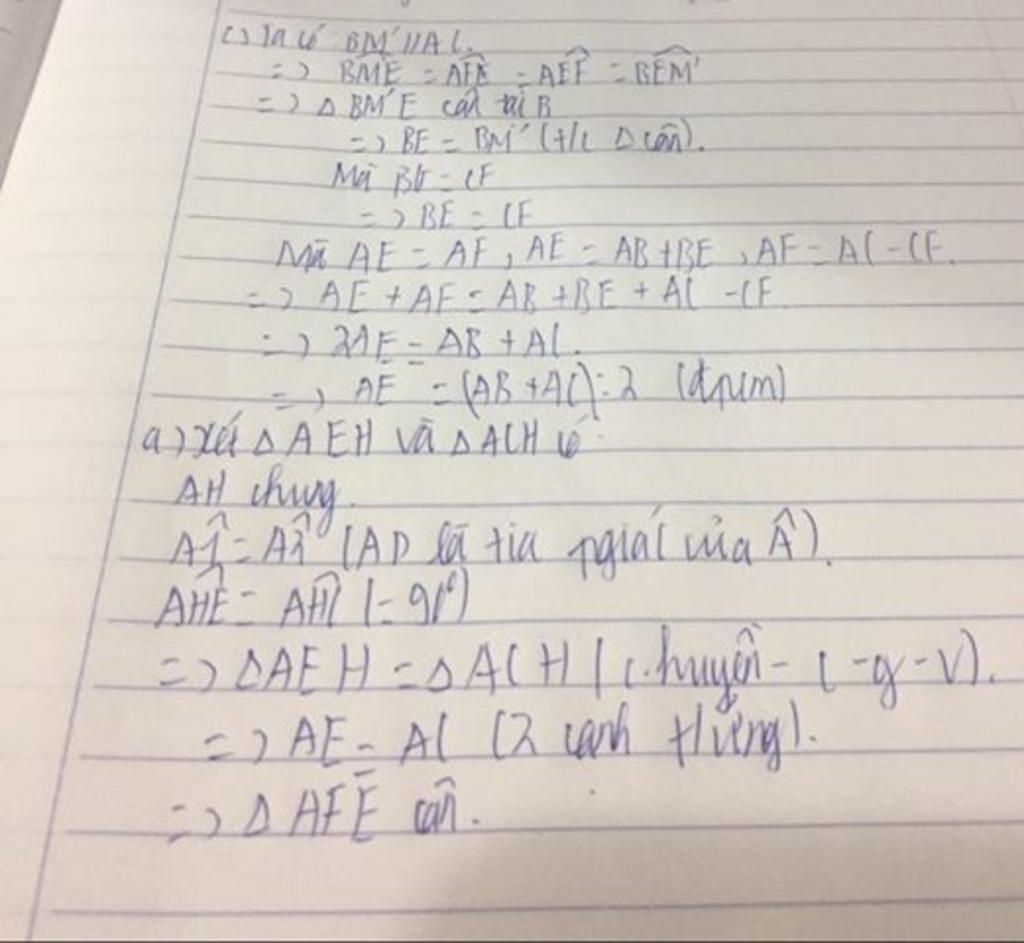 c) Ta có BM' // AC.
=> BM'E = AFE = AEF = BEM'
=> Δ BM'E cân tại B
=> BE = BM' (t/c Δ cân).
Mà BM' = CF
=> BE = CF
Mà AE = AF, AE = AB + BE, AF = AC - CF.
=> AE + AF = AB + BE + AC - CF
=> 2AE = AB + AC.
=> AE = (AB + AC) : 2 (đpcm)
a) xét Δ AEH và Δ ACH có
AH chung.
Â1 = Â2 (AD là tia pgiác của Â).
AHE = AHC (= 90°)
=> ΔAEH = ΔACH (c.huyền - c - g - v).
=> AE = AC (2 cạnh tứng).
=> Δ AFE cân.